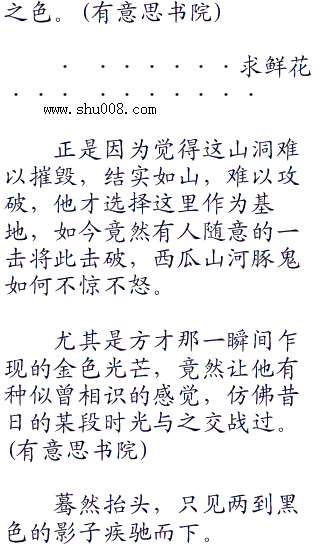 之色。(有意思书院)
· · · · · · · ·求鲜花
· · · · · · · · · ·
www.shu008.com
正是因为觉得这山洞难
以摧毁，结实如山，难以攻
破，他才选择这里作为基
地，如今竟然有人随意的一
击将此击破，西瓜山河豚鬼
如何不惊不怒。
尤其是方才那一瞬间乍
现的金色光芒，竟然让他有
种似曾相识的感觉，仿佛昔
日的某段时光与之交战过。
(有意思书院)
蓦然抬头，只见两到黑
色的影子疾驰而下。